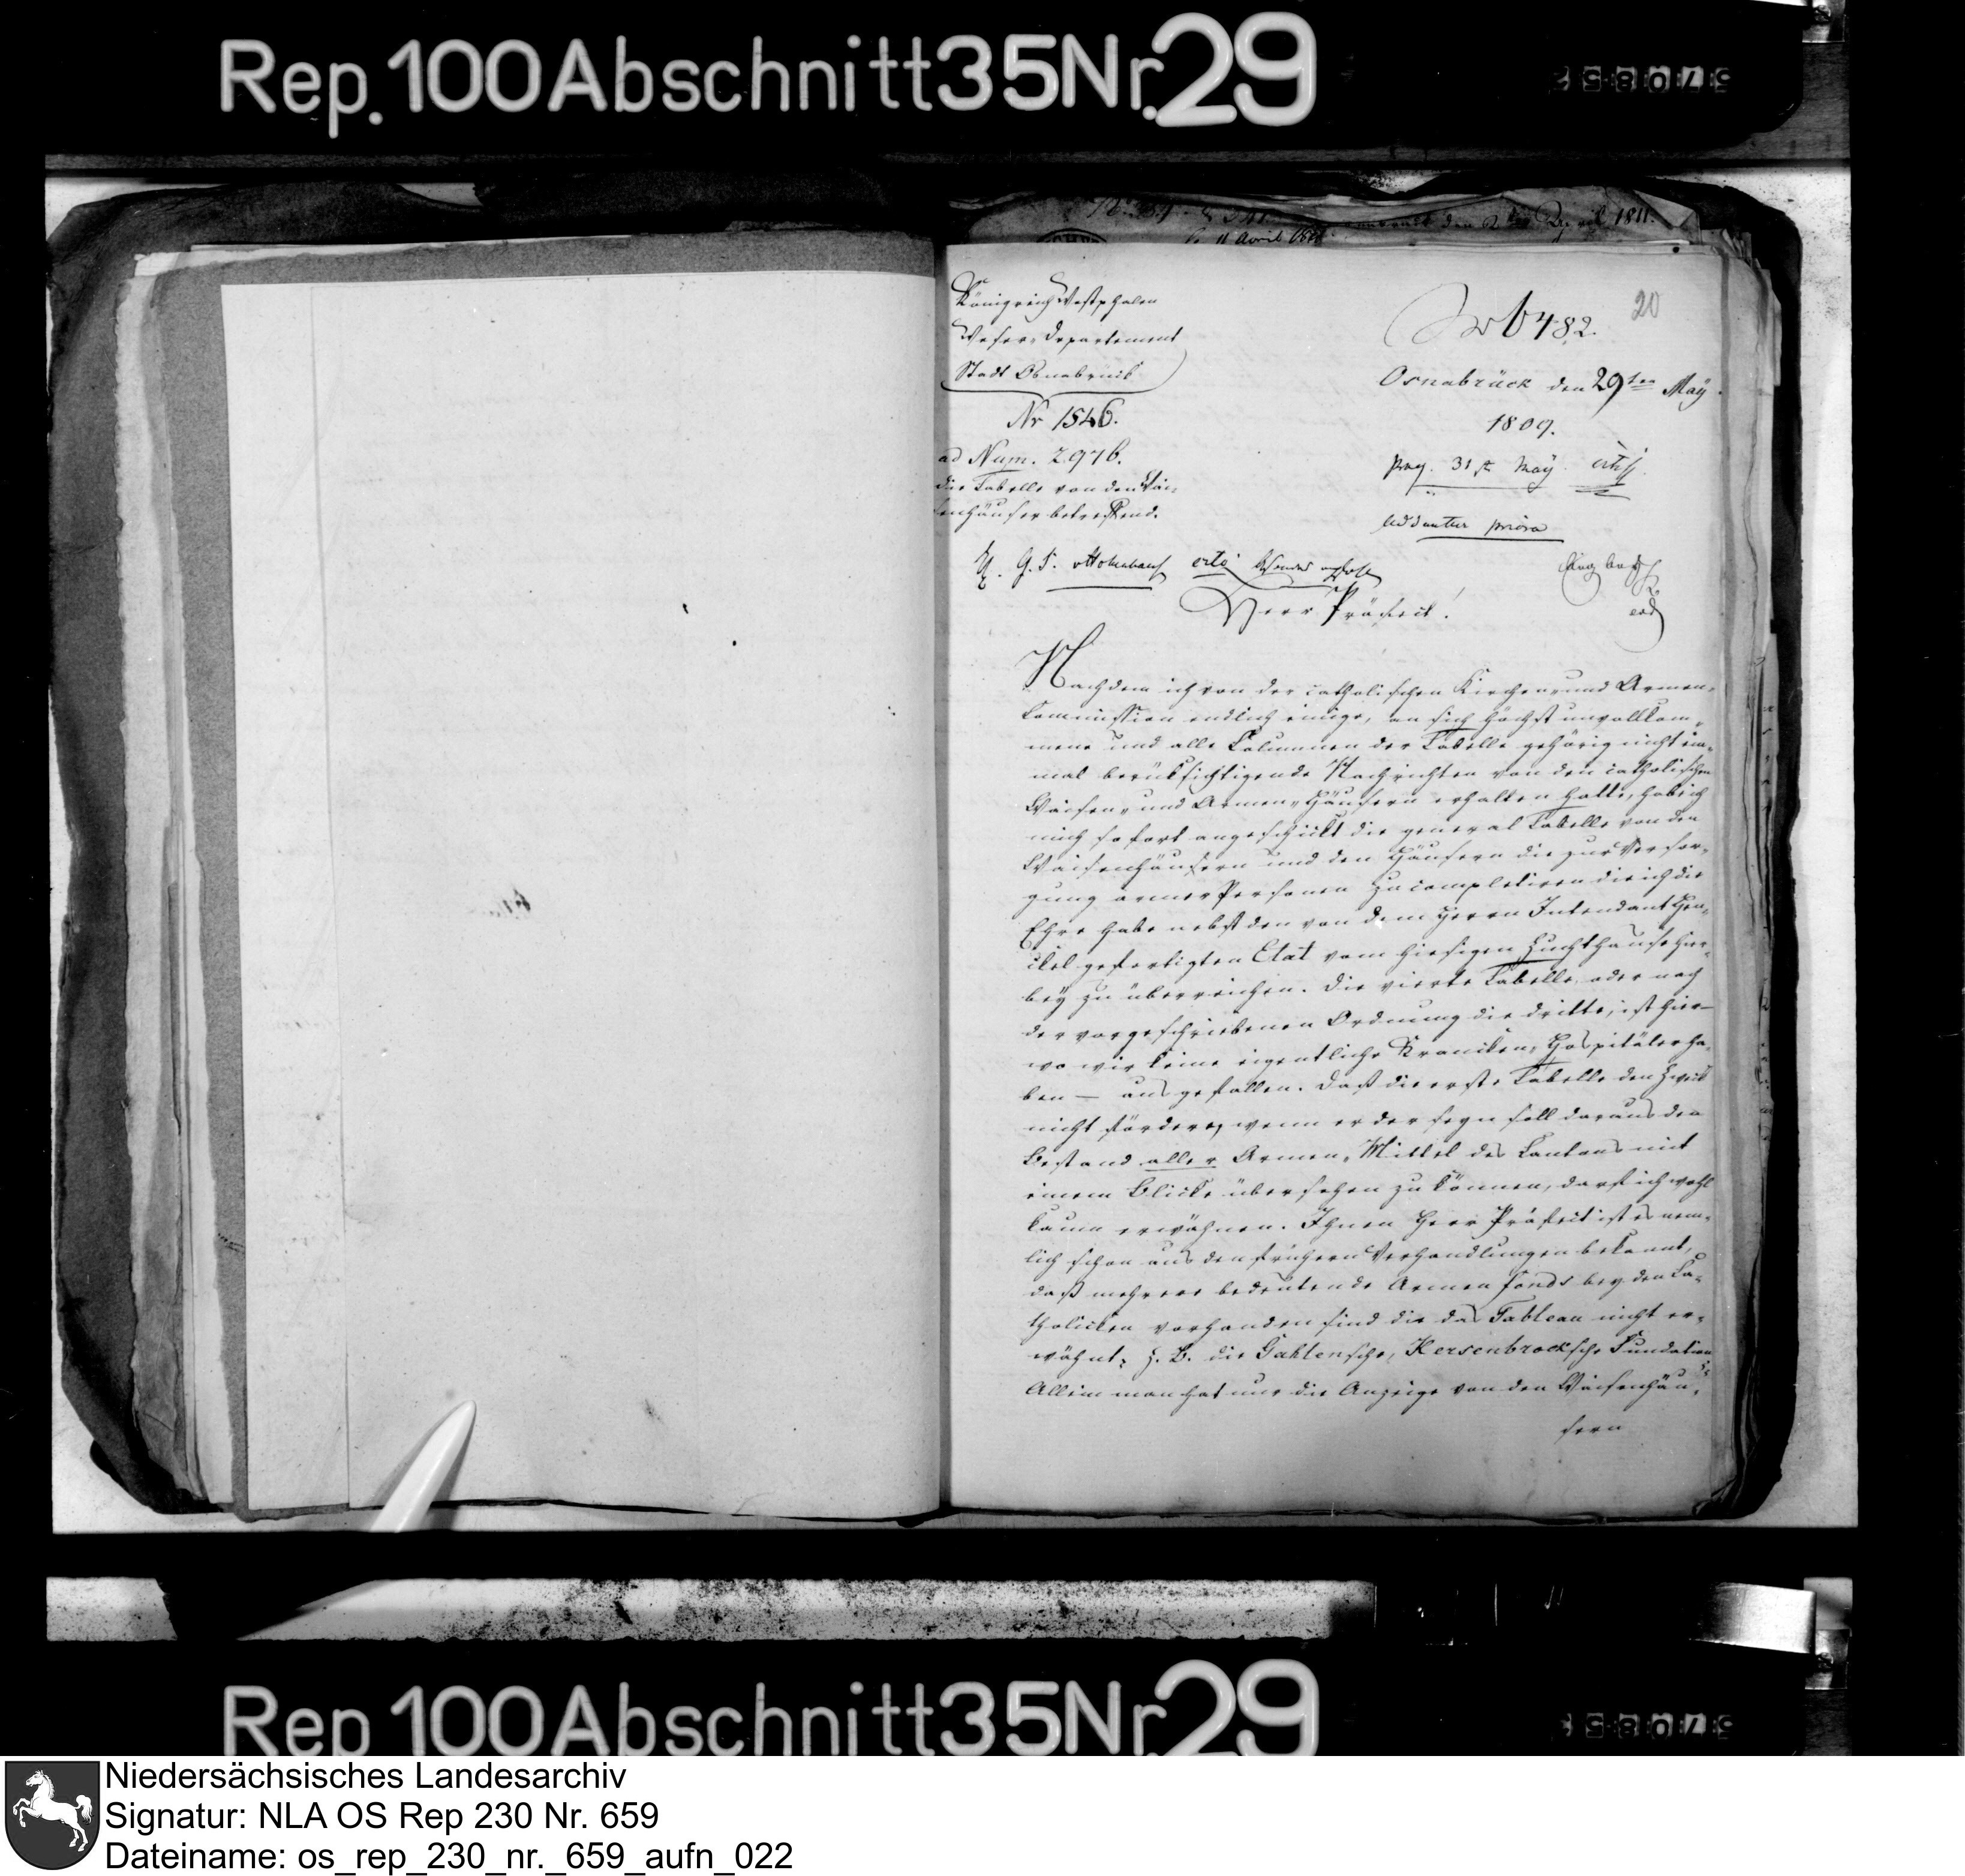 Rep. 100 Abschnitt 35 Nr. 29
57085
den 2ten April 1811.
11 Avril 1811
20
Königreich Westphalen
Weser-Departement
Stadt Osnabrück
Nr 1546.
ad Num. 2976.
die Tabelle von den Wai-
senhäuser betreffend.
6482.
Osnabrück den 29ten May
1809.
31 st May
addantur priora
Herr Präfect!
Nachdem ich von der catholischen Kirchen- und Armen-
Commission endlich einige, an sich höchst unvollkom-
mene und alle Columnen der Tabelle gehörig nicht ein-
mal berücksichtigende Nachrichten von den catholischen
Waisen- und Armen-Häusern erhalten hatte, hab ich
mich sofort angeschickt die general Tabelle von den
Waisenhäusern und den Häusern die zur Versor-
gung armer Personen zu completiren die ich die
Ehre habe nebst den von dem Herrn Intendant Hen-
ckel gefertigten Etat vom hiesigen Zuchthause hie-
bey zu überreichen. Die vierte Tabelle, oder nach
der vorgeschriebenen Ordnung die dritte, ist hier —
wo wir keine eigentliche Krancken-Hospitäler ha-
ben — ausgefallen. Daß die erste Tabelle den Zweck
nicht fördere, wenn er der seyn soll daraus den
Bestand aller Armen-Mittel des Cantons mit
einem Blicke übersehen zu können, darf ich wohl
kaum erwähnen. Ihnen Herr Präfect ist es nem-
lich schon aus den frühern Verhandlungen bekannt,
daß mehrere bedeutende Armen fonds bey den Ca-
tholicken vorhanden sind die das Tableau nicht er-
wähnt, z. B. die Gahlensche, Kersenbrocksche Fundation
Allein man hat nur die Anzeige von den Waisenhäu-
sern
Rep 100 Abschnitt 35 Nr. 29
57085
Niedersächsisches Landesarchiv
Signatur: NLA OS Rep 230 Nr. 659
Dateiname: os_rep_230_nr._659_aufn_022